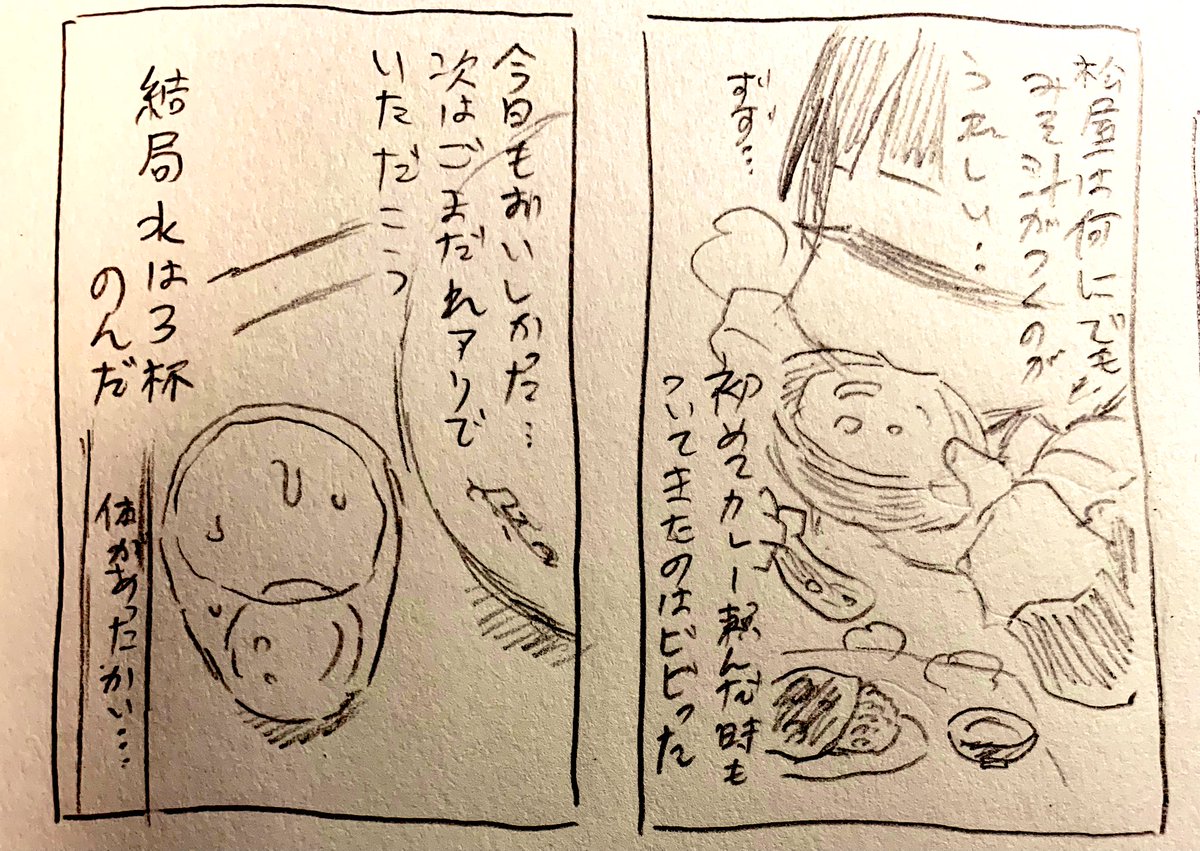 松屋は何にでも
みそ汁がつくのが
うれしい…
ずず…
初めてカレー頼んだ時も
ついてきたのはビビった
今日もおいしかった…
次はごまだれアリで
いただこう
結局水は3杯
のんだ
体があったかい…